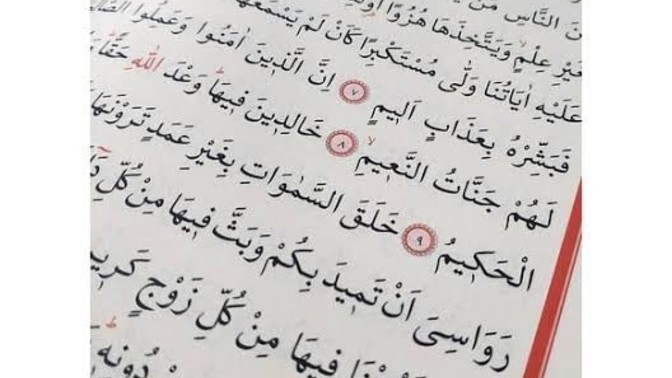 نَ النَّاسِ مَنْ
غَيْرِ عِلْمٍ وَيَتَّخِذَهَا هُزُوًا
عَلَيْهِ اٰيَاتُنَا وَلّٰى مُسْتَكْبِرًا كَاَنْ لَمْ يَسْمَعْهَا
فَبَشِّرْهُ بِعَذَابٍ اَلِيمٍ ٧ اِنَّ الَّذِينَ اٰمَنُوا وَعَمِلُوا
لَهُمْ جَنَّاتُ النَّعِيمِ ٨ خَالِدِينَ فِيهَا وَعْدَ اللّٰهِ حَقًّا
الْحَكِيمُ ٩ خَلَقَ السَّمٰوَاتِ بِغَيْرِ عَمَدٍ تَرَوْنَهَا
رَوَاسِىَ اَنْ تَمِيدَ بِكُمْ وَبَثَّ فِيهَا مِنْ كُلِّ
فِيهَا مِنْ كُلِّ زَوْجٍ
دُونِهِ